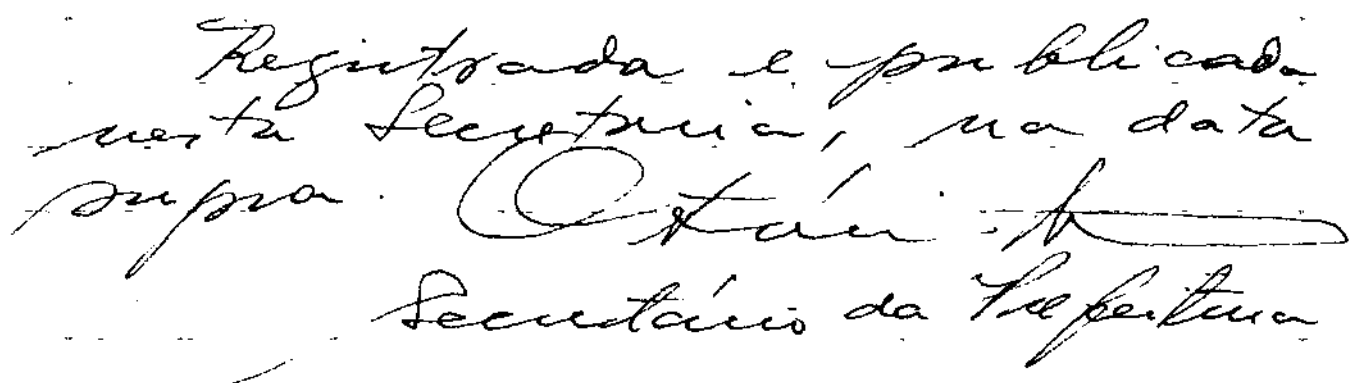 Registrada e publicada
nesta Secretaria, na data
supra.
Secretário da Prefeitura